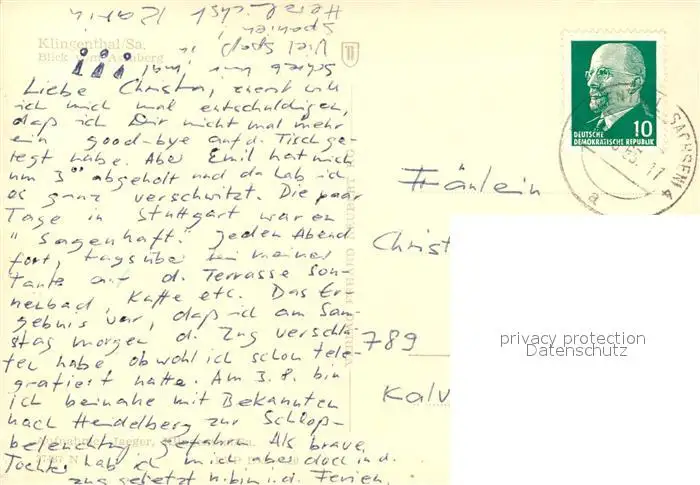 Klingenthal/Sa.
Blick vom Aschberg
Liebe Christa, zuerst will
ich mich mal entschuldigen,
daß ich Dir nicht mal mehr
ein good-bye auf d. Tisch ge-
legt habe. Aber Emil hat mich
um 3°° abgeholt und da hab ich
es ganz verschwitzt. Die paar
Tage in Stuttgart waren
"sagenhaft." Jeden Abend
fort, tagsüber bei meiner
Tante auf d. Terrasse Son-
nenbad, Kaffe etc. Das Er-
gebnis war, daß ich am Sam-
stag morgen d. Zug verschla-
fen habe, obwohl ich schon tele-
grafiert hatte. Am 3.8. bin
ich beinahe mit Bekannten
nach Heidelberg zur Schloß-
beleuchtung gefahren. Als brave
Tochter hab ich mich aber doch in d.
Zug gesetzt n. in i. d. Ferien.
Schreib mir mal!!!
Viel Spaß in
Spanien!
Herzlichst Karin
Aufnahme: Jaeger,
DEUTSCHE
DEMOKRATISCHE REPUBLIK
10
SACHSEN) 4
a
Fräulein
Christ
789
Kalv
privacy protection
Datenschutz